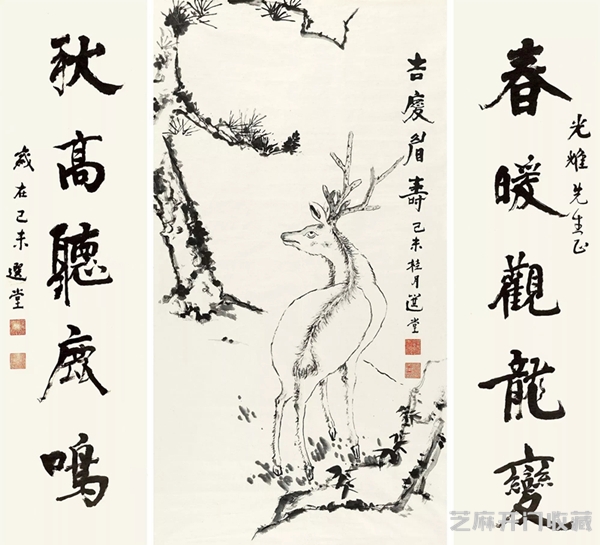 光雄先生正
春暖觀龍變
吉慶眉壽 己未桂月選堂
秋高聽鹿鳴
歲在己未 選堂
芝麻开门收藏